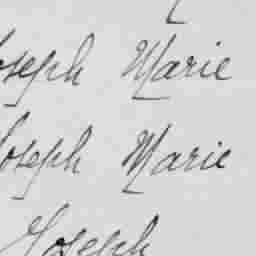 Joseph Marie
Joseph Marie
Joseph